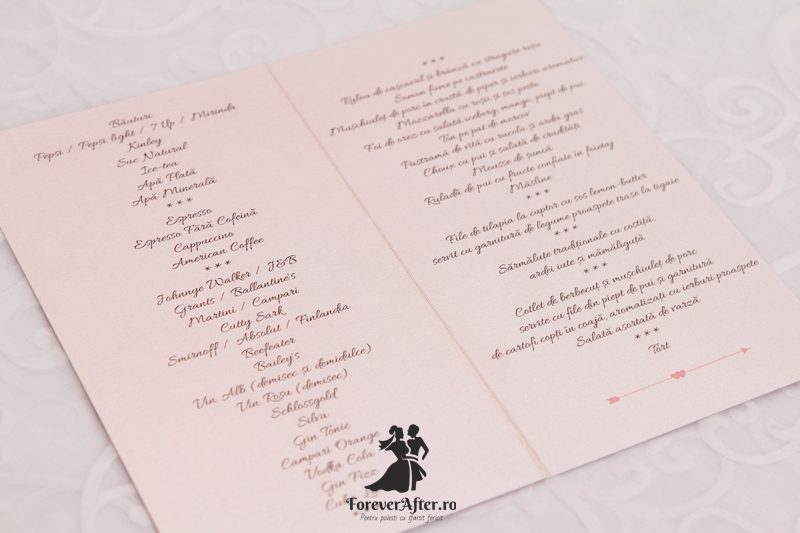 Băuturi
Pepsi / Pepsi light / 7 Up / Mirinda
Kinley
Suc Natural
Ice-tea
Apă Plată
Apă Minerală
***
Espresso
Espresso Fără Cofeină
Cappuccino
American Coffee
***
Johnnye Walker / J&B
Grants / Ballantine's
Martini / Campari
Cutty Sark
Smirnoff / Absolut / Finlandia
Beefeater
Bailey's
Vin Alb (demisec și demidulce)
Vin Roșu (demisec)
Schlossgold
Silva
Gin Tonic
Campari Orange
Vodka Cola
Gin Fizz
***
Rulou de cașcaval și brânză cu strugure roșu
Somon fume pe castravete
Mușchiuleț de porc în crustă de piper și ierburi aromatice
Mozzarella cu roșii și sos pesto
Foi de orez cu salată iceberg, mango, piept de pui
Ton pe pat de morcov
Pastramă de vită cu rucola și ardei gras
Choux cu pui și salată de crudități
Mousse de șuncă
Ruladă de pui cu fructe confiate în foietaj
Măsline
***
File de tilapia la cuptor cu sos lemon-butter
servit cu garnitură de legume proaspete trase la tigaie
***
Sărmăluțe tradiționale cu costiță,
ardei iute și mămăliguță
***
Cotlet de berbecuț și mușchiuleț de porc
servite cu file din piept de pui și garnitură
de cartofi copți în coajă, aromatizați cu ierburi proaspete
Salată asortată de varză
***
Tort
ForeverAfter.ro
Pentru povesti cu sfarsit fericit